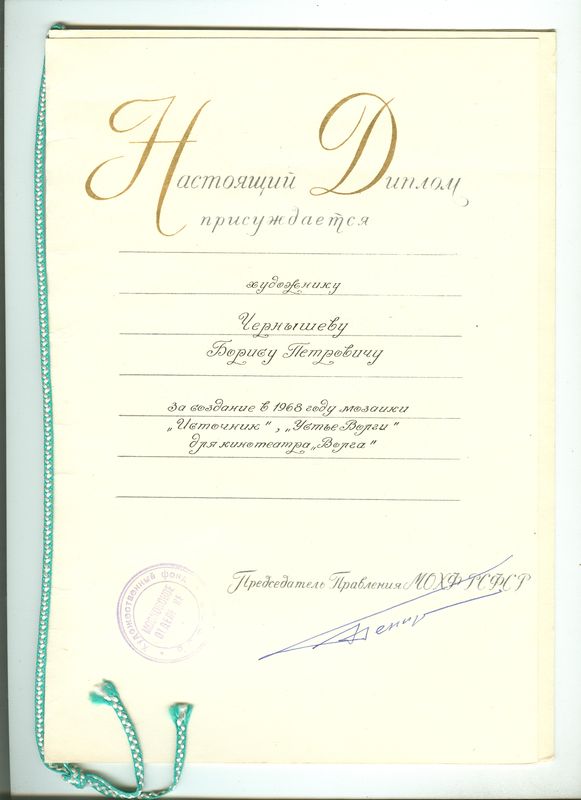 Настоящий Диплом
присуждается
художнику
Чернышеву
Борису Петровичу
за создание в 1968 году мозаики
„Источник", „Устье Волги"
для кинотеатра „Волга"
Председатель Правления МОХФ РСФСР
Художественный фонд
Московское
отделение